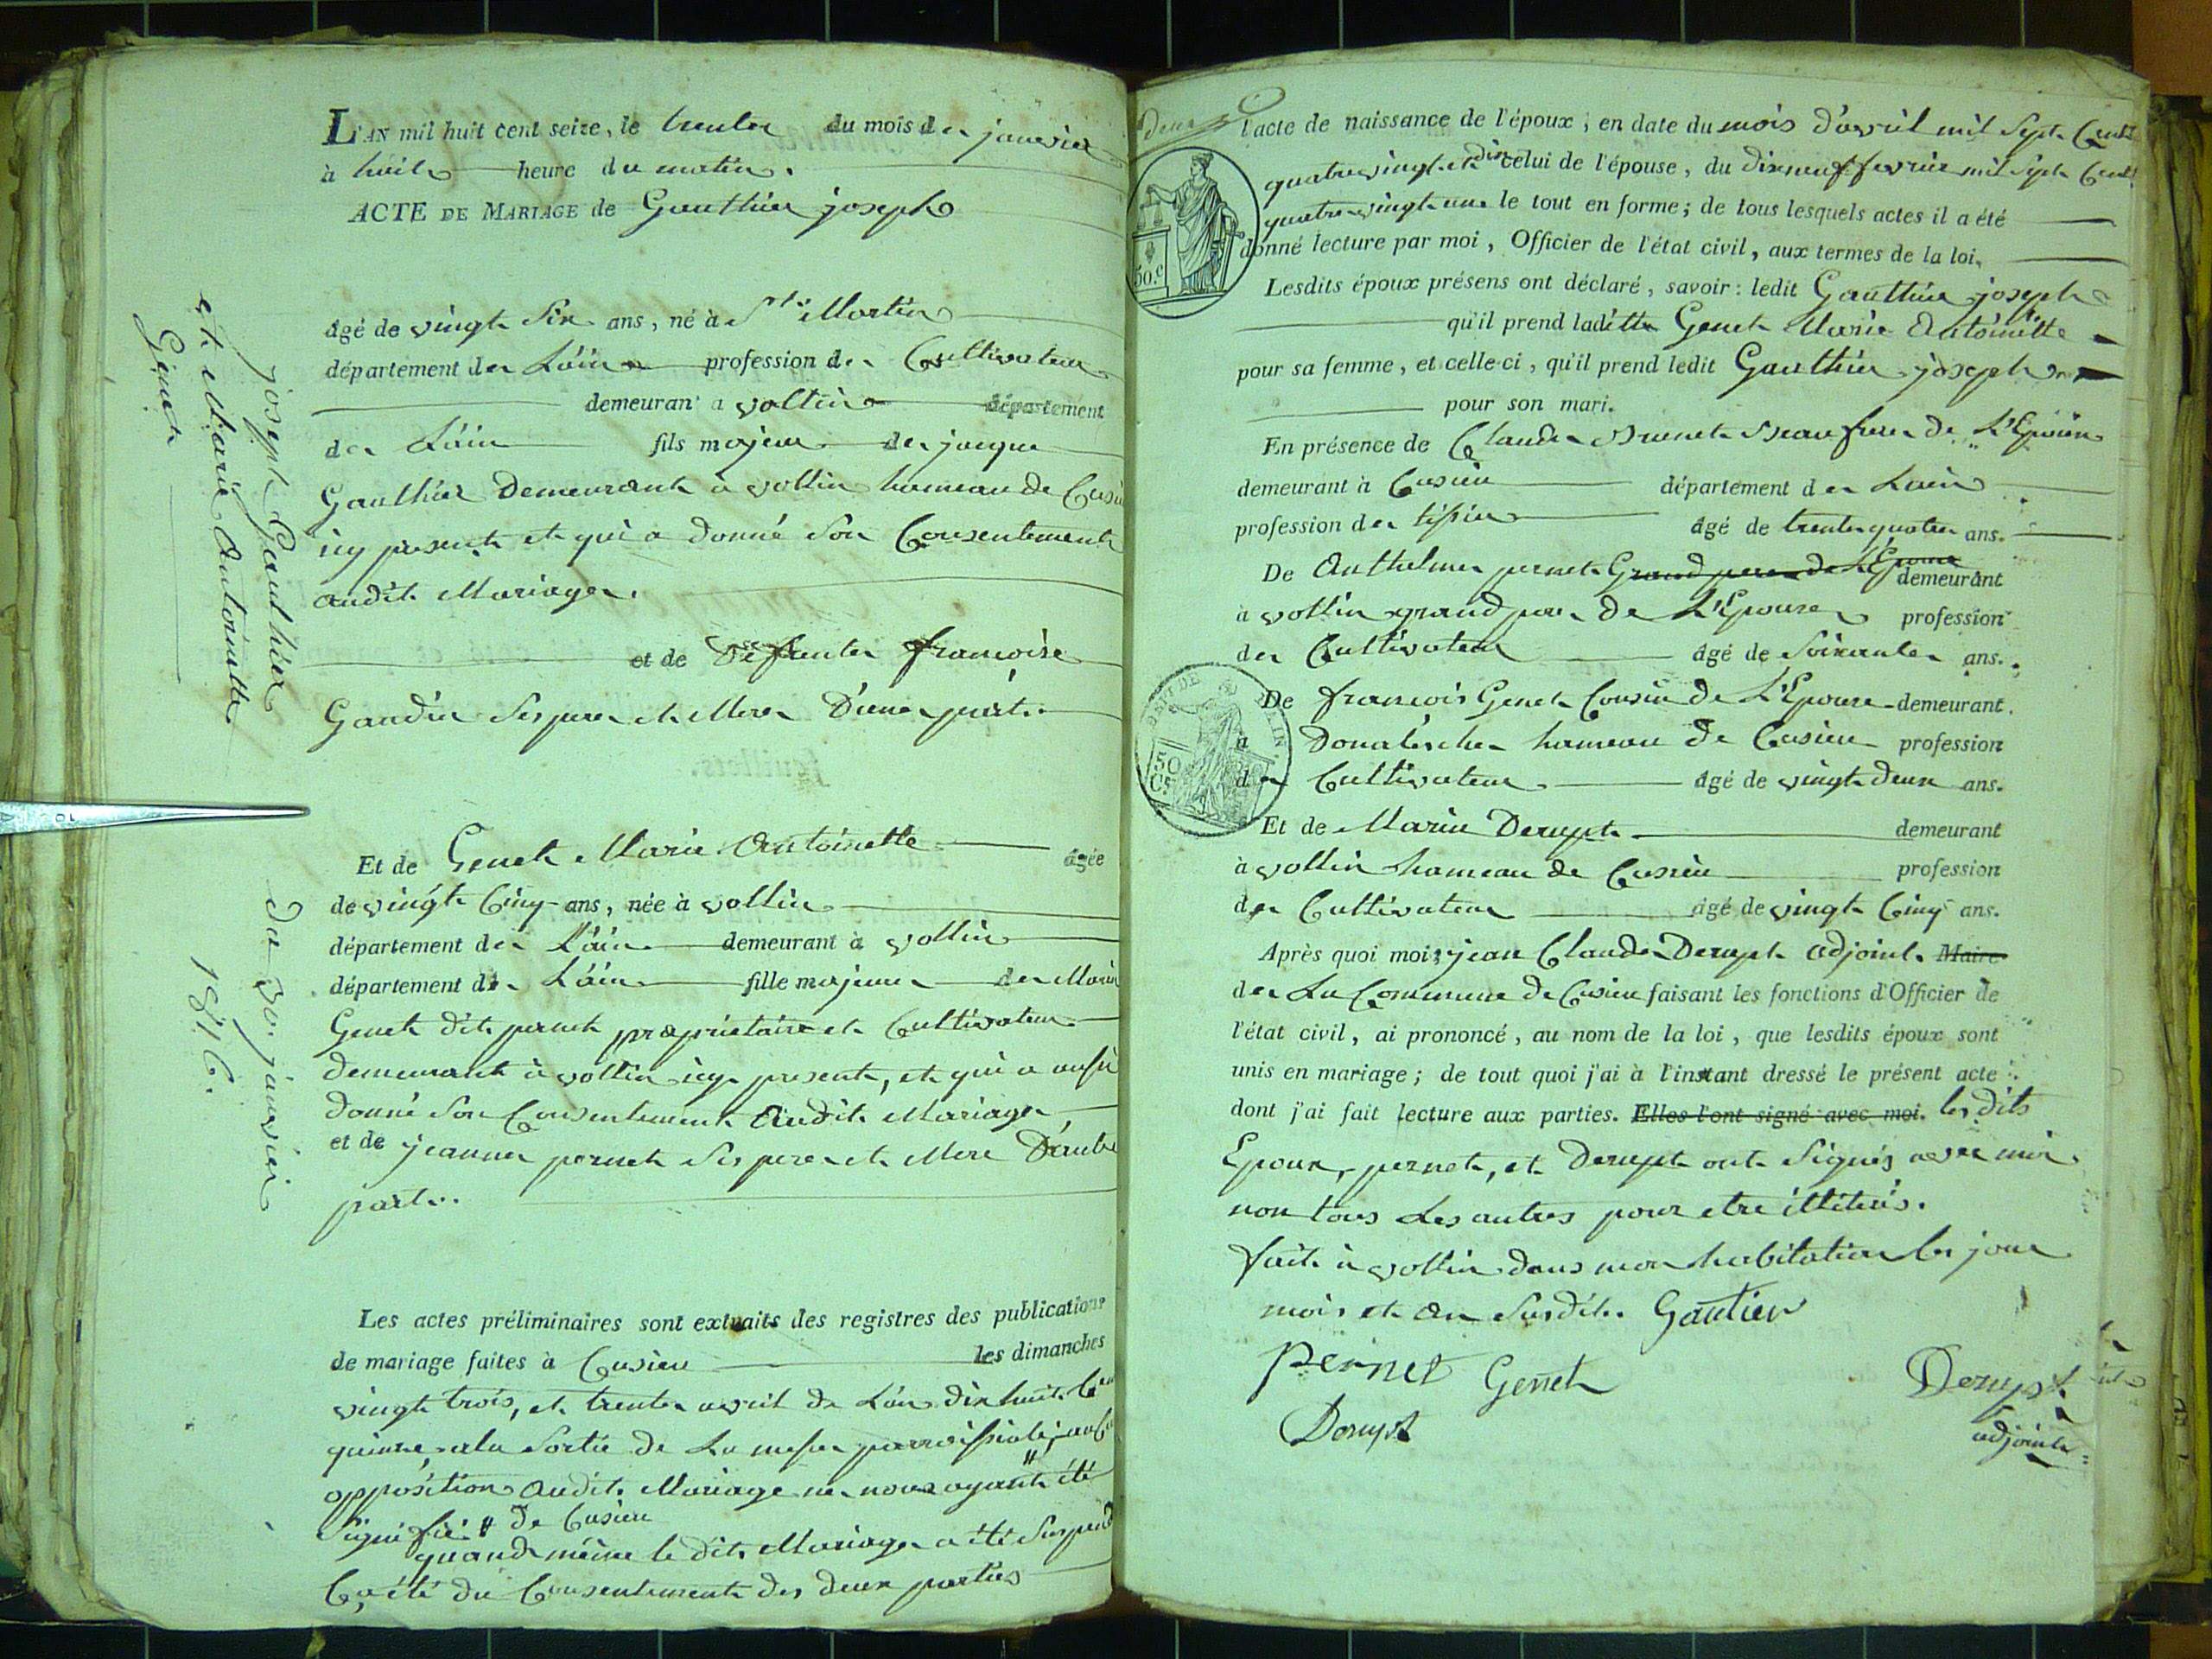 L'AN mil huit cent seize, le trente du mois de janvier
à huit heure du matin.
ACTE DE MARIAGE de Gauthier joseph
âgé de vingt Six ans, né à St. Martin
département de L'ain profession de Cultivateur
demeurant a vollin département
de L'ain fils majeur de jacque
Gauthier Demeurant à vollin hameau de Cusieu
icy present et qui a donné Son Consentement
audit Mariage.
et de Défunte francoise
Gaudin Ses pere et Mere D'une part.
joseph Gauthier
et Marie Antoinette
Genet
Et de Genet Marie Antoinette âgée
de vingt Cinq ans, née à vollin
département de L'ain demeurant à vollin
département de L'ain fille majeure de Marin
Genet dit pernet propriétaire et Cultivateur
demeurant à vollin icy present, et qui a aussi
donné Son Consentement Audit Mariage
et de jeanne pernet Ses pere et Mere D'autre
part.
Du 30. janvier
1816.
Les actes préliminaires sont extraits des registres des publications
de mariage faites à Cusieu les dimanches
vingt trois, et trente avril de L'an dix huit Cent
quinze, a la Sortie de La messe parroissiale,
opposition Audit Mariage ne nous ayant été
Signifié. # de Cusieu
quand même le dit Mariage a été Suspendu
C'a été du Consentement des deux parties
deux
l'acte de naissance de l'époux, en date du mois d'avril mil Sept Cent
quatre vingt et dix celui de l'épouse, du dix neuf fevrier mil Sept Cent
quatre vingt onze le tout en forme; de tous lesquels actes il a été
donné lecture par moi, Officier de l'état civil, aux termes de la loi.
50.c
Lesdits époux présens ont déclaré, savoir: ledit Gauthier joseph
qu'il prend ladite Genet Marie Antoinette
pour sa femme, et celle-ci, qu'il prend ledit Gauthier joseph
pour son mari.
En présence de Claude Brunet Beau frere de L'Epoux
demeurant à Cusieu département de Lain
profession de tissier âgé de trente quatre ans.
De Anthelme pernet Grand pere de L'Epouse demeurant
à vollin grand pere de L'Epouse profession
de Cultivateur âgé de Soixante ans.
De francois Genet Cousin de L'Epouse demeurant
a Donalèche hameau de Cusieu profession
de Cultivateur âgé de vingt deux ans.
50
Cs
Et de Marin Derupt demeurant
à vollin hameau de Cusieu profession
de Cultivateur âgé de vingt Cinq ans.
Après quoi moi, jean Claude Derupt adjoint Maire
de La Commune de Cusieu faisant les fonctions d'Officier de
l'état civil, ai prononcé, au nom de la loi, que lesdits époux sont
unis en mariage; de tout quoi j'ai à l'instant dressé le présent acte
dont j'ai fait lecture aux parties. Elles l'ont signé avec moi. les dits
Epoux, pernet, et Derupt ont Signés avec moi
non tous Les autres pour etre illiterés.
fait à vollin dans mon habitation les jour
mois et An Susdit. Gautier
Pernet Genet
Derupt
Derupt
adjoint